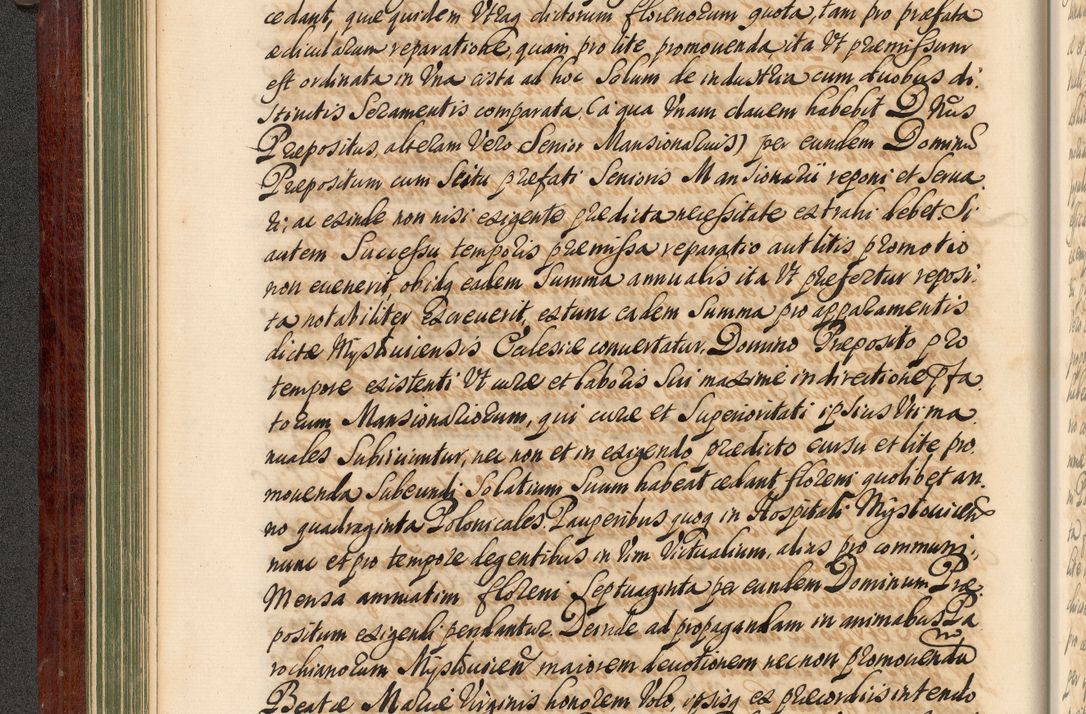 cedant, quæ quidem Utraq dictorum florenorum quota, tam pro præfata
ædicularum reparatione, quam pro lite promovenda ita Ut præmissum
est ordinata in Una cista ad hoc Solum de industria cum duobus di-
stinctis Seramentis comparata (a qua Unam clavem habebit D Nus
Præpositus, alteram Vero Senior Mansionarius) per eundem Dominũ
Præpositum cum Scitu præfati Senioris Mansionarii reponi et Serva-
ri; ac exinde non nisi exigente prædicta necessitate extrahi debet. Si
autem Successu temporis præmissa reparatio aut litis promotio
non evenerit, obidq eadem Summa annualis ita Ut præfertur reposi-
ta notabiliter excreverit, ex tunc eadem Summa pro apparamentis
dictæ Mysloviciensis Ecclesiæ convertatur. Domino Præposito pro
tempore existenti Ut curæ et laboris Sui maxime in directione pfa-
torum Mansionariorum, qui curæ et Superioritati ipsius Uti ma-
nuales Subiiciuntur, nec non et in exigendo prædicto cursu et lite pro-
movenda Subeundi Solatium Suum habeat cedant floreni quolibet an-
no quadraginta Polonicales. Pauperibus quoq in Hospitali Mysloviceñ
nunc et pro tempore degentibus in Vim Victualium, alias pro communi
Mensa annuatim floreni Septuaginta per eundem Dominum Præ-
positum exigendi pendantur. Deinde ad propagandam in animabus Pa-
rochianorum Mysloviceñ maiorem devotionem nec non promovendũ
Beatæ Mariæ Virginis honorem Volo, ipsisq ex præcordiis intendo